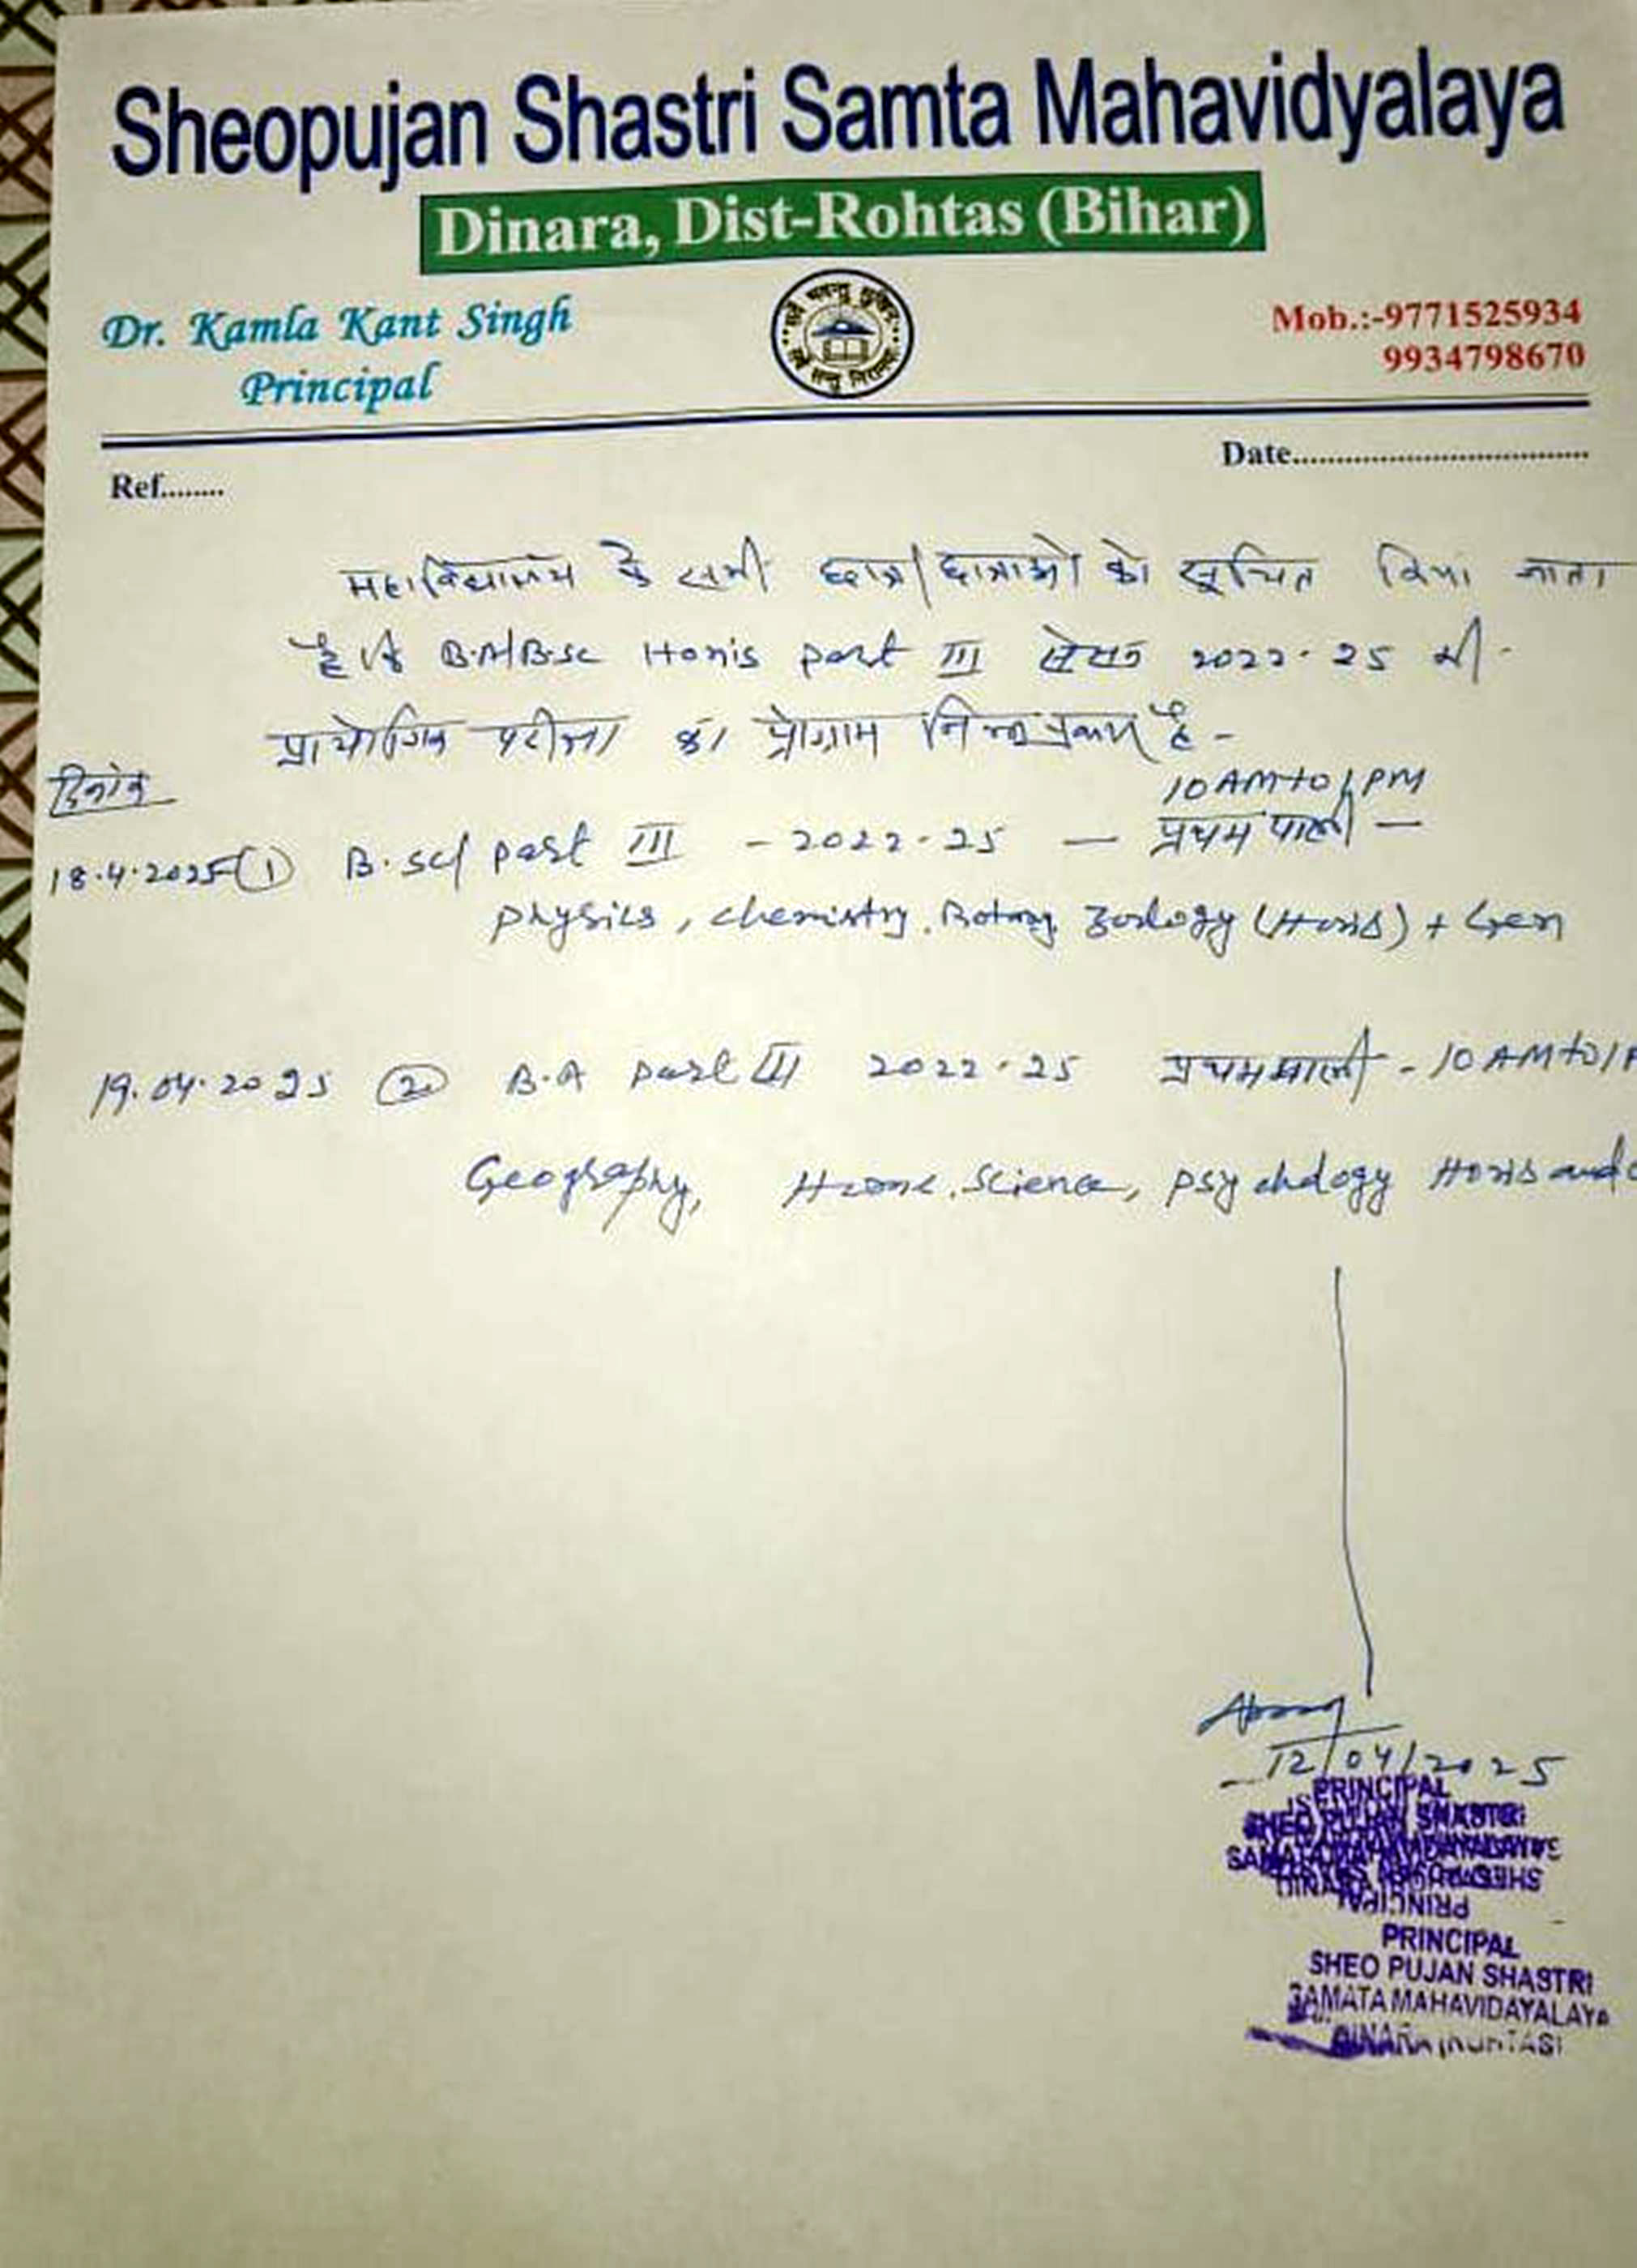 Sheopujan Shastri Samta Mahavidyalaya
Dinara, Dist-Rohtas (Bihar)
Dr. Kamla Kant Singh
Principal
सर्वे भवन्तु सुखिनः
सर्वे सन्तु निरामयाः
Mob.:-9771525934
9934798670
Date.................................
Ref........
महाविद्यालय के सभी छात्र/छात्राओं को सूचित किया जाता
है कि B.A/B.sc Honrs part III सेसन 2022-25 की
प्रायोगिक परीक्षा का प्रोग्राम निम्न प्रकार है -
दिनांक
10 AM to 1 PM
18.4.2025 (1) B.sc/ part III - 2022-25 — प्रथम पाली —
physics, chemistry, Botany, Zoology (Honrs) + Gen
19.04.2025 (2) B.A part III 2022-25 प्रथम पाली - 10 AM to 1 P
Geography, Home Science, psychology Honrs and
12/04/2025
PRINCIPAL
SHEO PUJAN SHASTRI
PRINCIPAL
PRINCIPAL
SHEO PUJAN SHASTRI
SAMATA MAHAVIDAYALAYA
DINARA (ROHTAS)